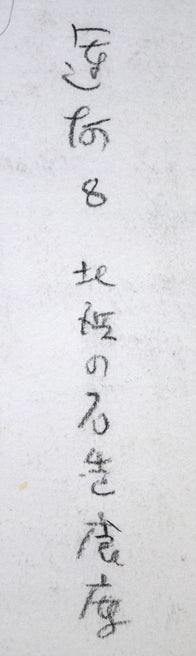 運河8 北浜の石造倉庫